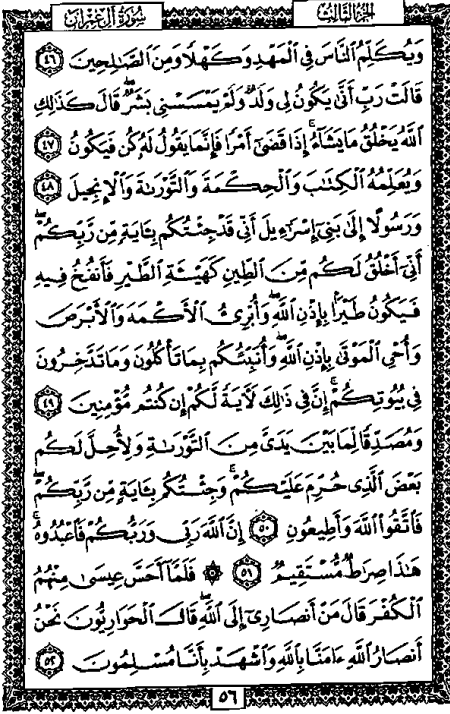 سورة آل عمران
الجزء الثالث
وَيُكَلِّمُ النَّاسَ فِي الْمَهْدِ وَكَهْلًا وَمِنَ الصَّالِحِينَ ٤٦
قَالَتْ رَبِّ أَنَّىٰ يَكُونُ لِي وَلَدٌ وَلَمْ يَمْسَسْنِي بَشَرٌ ۖ قَالَ كَذَٰلِكِ
اللَّهُ يَخْلُقُ مَا يَشَاءُ ۚ إِذَا قَضَىٰ أَمْرًا فَإِنَّمَا يَقُولُ لَهُ كُن فَيَكُونُ ٤٧
وَيُعَلِّمُهُ الْكِتَابَ وَالْحِكْمَةَ وَالتَّوْرَىٰةَ وَالْإِنجِيلَ ٤٨
وَرَسُولًا إِلَىٰ بَنِي إِسْرَٰٓءِيلَ أَنِّي قَدْ جِئْتُكُم بِـَٔايَةٍ مِّن رَّبِّكُمْ ۖ
أَنِّي أَخْلُقُ لَكُم مِّنَ الطِّينِ كَهَيْـَٔةِ الطَّيْرِ فَأَنفُخُ فِيهِ
فَيَكُونُ طَيْرًا بِإِذْنِ اللَّهِ ۖ وَأُبْرِئُ الْأَكْمَهَ وَالْأَبْرَصَ
وَأُحْيِ الْمَوْتَىٰ بِإِذْنِ اللَّهِ ۖ وَأُنَبِّئُكُم بِمَا تَأْكُلُونَ وَمَا تَدَّخِرُونَ
فِي بُيُوتِكُمْ ۚ إِنَّ فِي ذَٰلِكَ لَـَٔايَةً لَّكُمْ إِن كُنتُم مُّؤْمِنِينَ ٤٩
وَمُصَدِّقًا لِّمَا بَيْنَ يَدَيَّ مِنَ التَّوْرَىٰةِ وَلِأُحِلَّ لَكُم
بَعْضَ الَّذِي حُرِّمَ عَلَيْكُمْ ۚ وَجِئْتُكُم بِـَٔايَةٍ مِّن رَّبِّكُمْ ۖ
فَاتَّقُوا اللَّهَ وَأَطِيعُونِ ٥٠ إِنَّ اللَّهَ رَبِّي وَرَبُّكُمْ فَاعْبُدُوهُ ۗ
هَٰذَا صِرَاطٌ مُّسْتَقِيمٌ ٥١ ۞ فَلَمَّا أَحَسَّ عِيسَىٰ مِنْهُمُ
الْكُفْرَ قَالَ مَنْ أَنصَارِي إِلَى اللَّهِ ۖ قَالَ الْحَوَارِيُّونَ نَحْنُ
أَنصَارُ اللَّهِ ءَامَنَّا بِاللَّهِ وَاشْهَدْ بِأَنَّا مُسْلِمُونَ ٥٢
٥٦